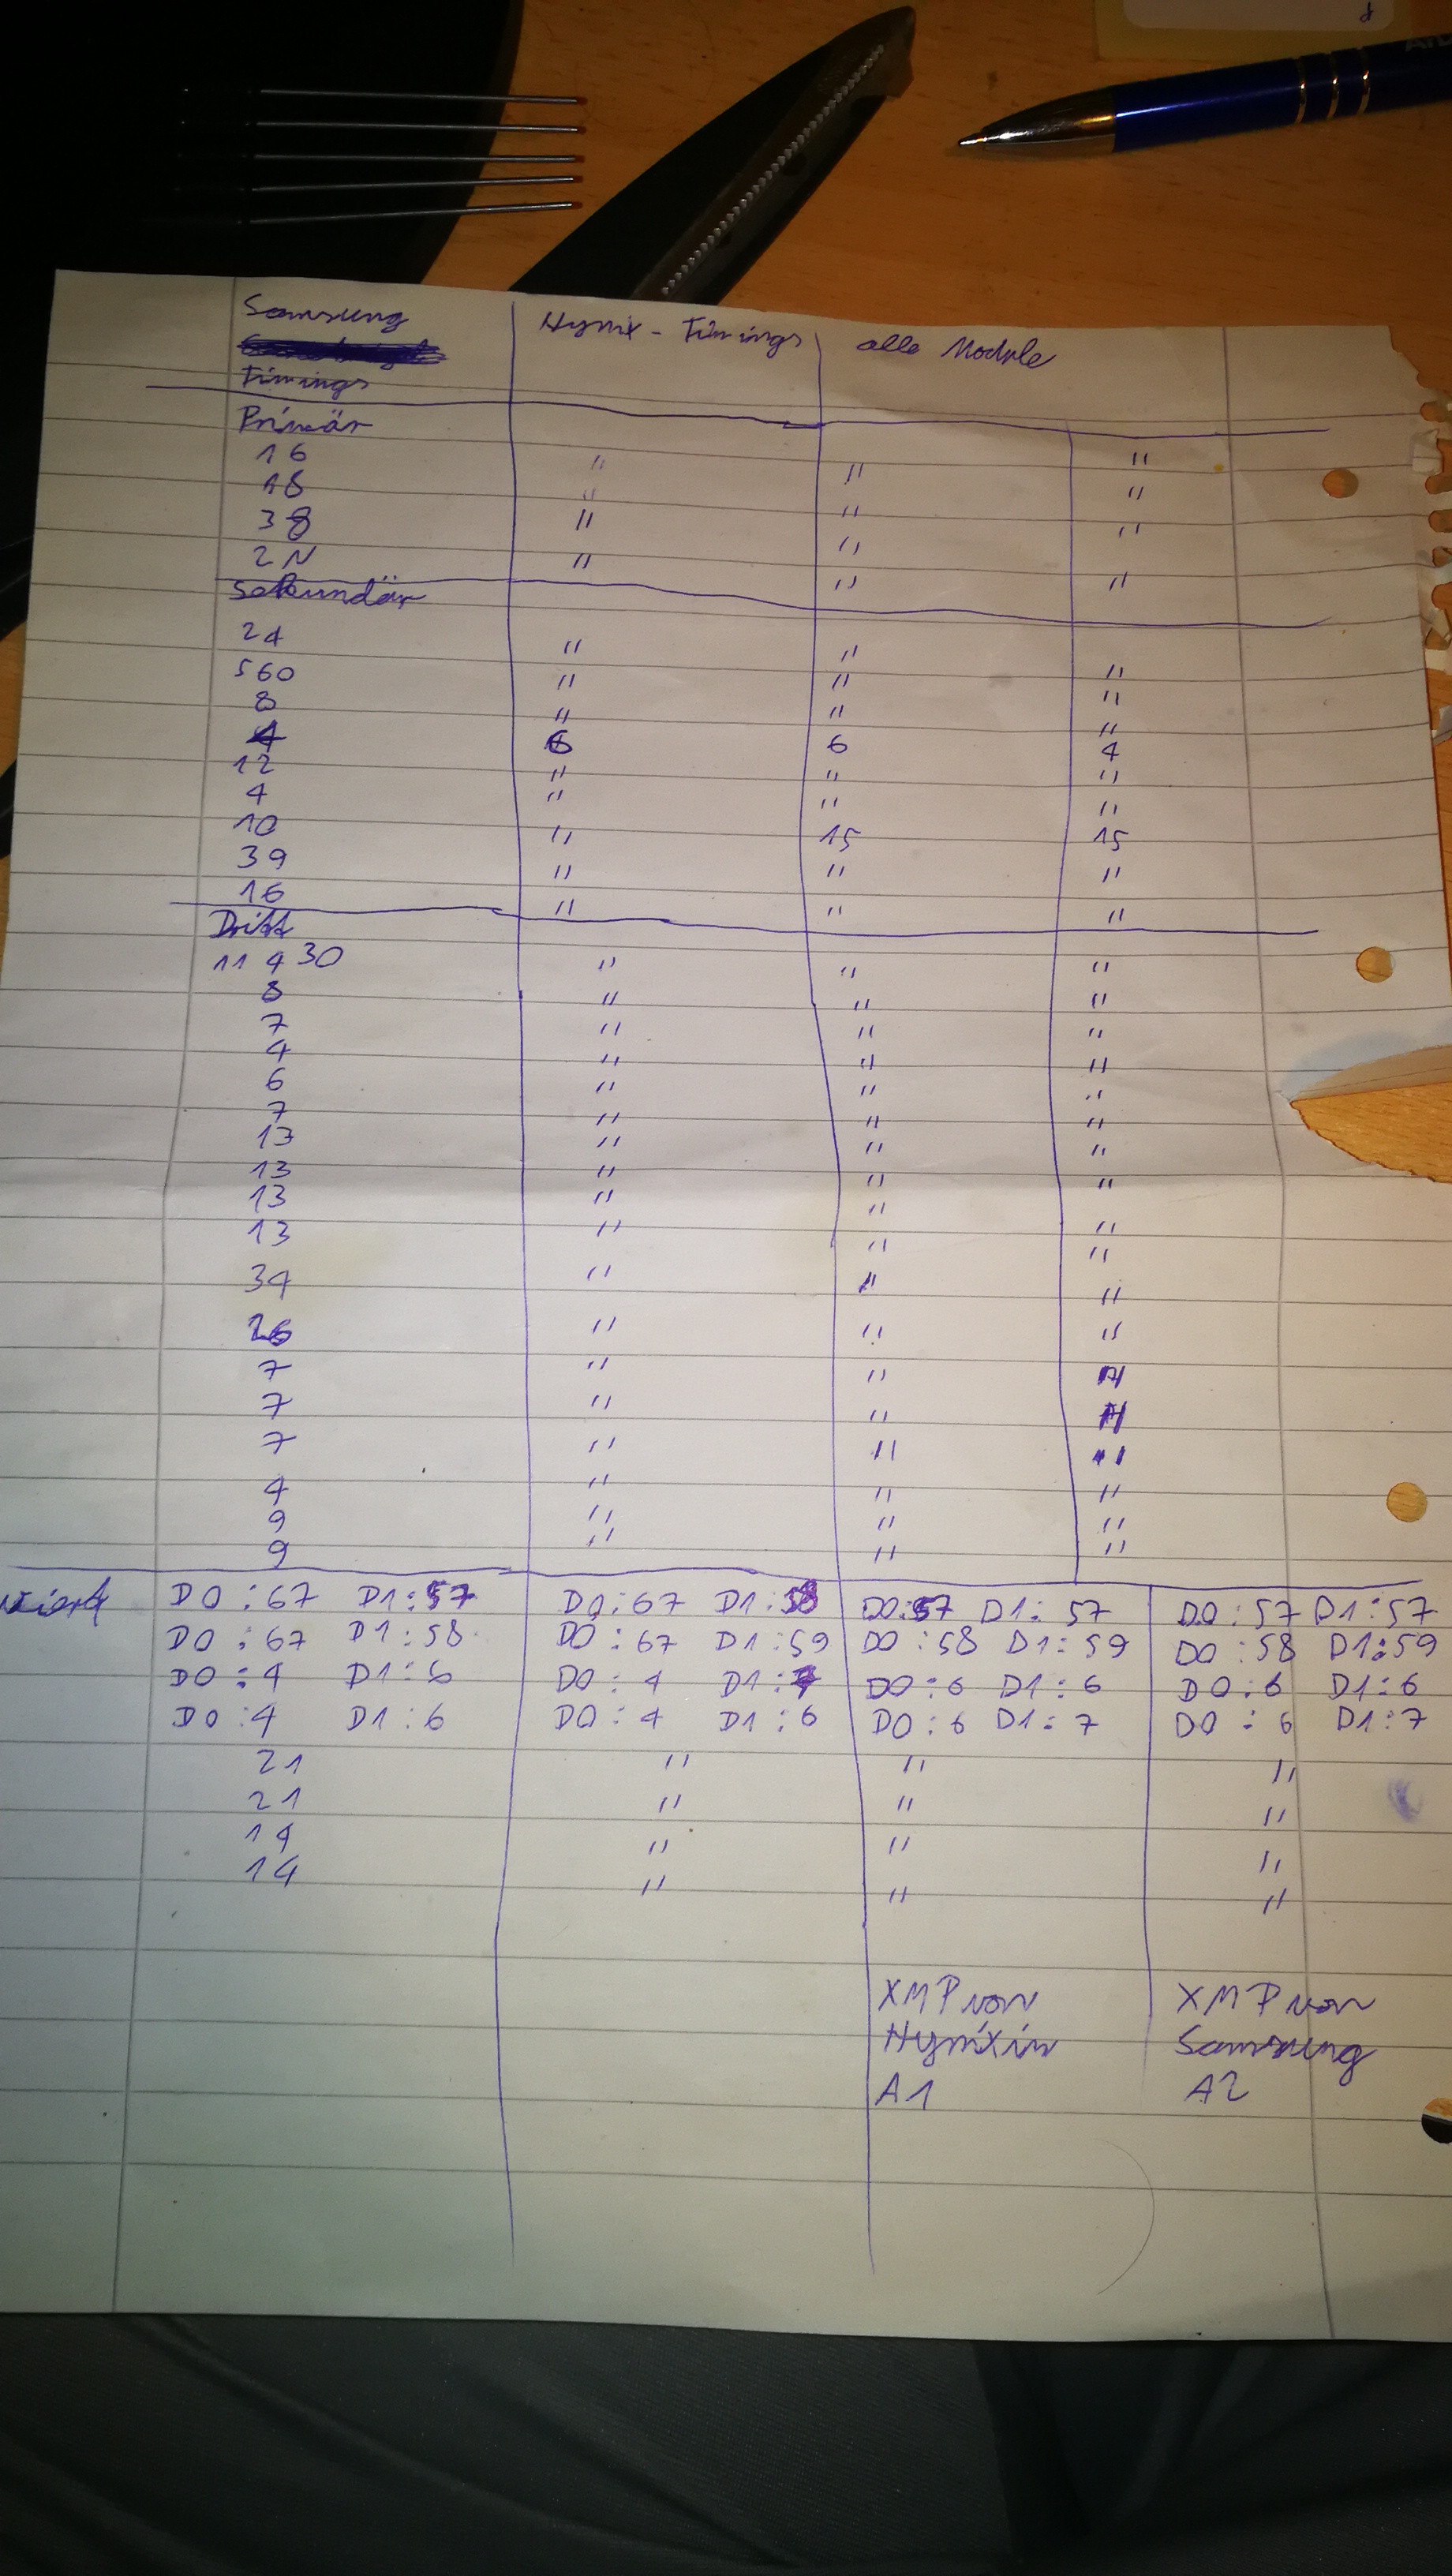 Samsung Hynix - Timings alle Module
Timings
Primär
16 " " "
18 " " "
38 " " "
2N " " "
Sekundär
24 " " "
560 " " "
8 " " "
4 6 6 4
12 " " "
4 " " "
10 " 15 15
39 " " "
16 " " "
Dritt
11 4 30 " " "
8 " " "
7 " " "
4 " " "
6 " " "
7 " " "
13 " " "
13 " " "
13 " " "
13 " " "
34 " " "
26 " " "
7 " "
7 " "
7 " " "
4 " " "
9 " " "
9 " " "
D0 : 67 D1 : 57 D0 : 67 D1 : 58 D0 : 57 D1 : 57 D0 : 57 D1 : 57
D0 : 67 D1 : 58 D0 : 67 D1 : 59 D0 : 58 D1 : 59 D0 : 58 D1 : 59
D0 : 4 D1 : 6 D0 : 4 D1 : D0 : 6 D1 : 6 D0 : 6 D1 : 6
D0 : 4 D1 : 6 D0 : 4 D1 : 6 D0 : 6 D1 : 7 D0 : 6 D1 : 7
21 " " "
21 " " "
14 " " "
14 " " "
XMP von XMP von
Hynix in Samsung
A1 A2